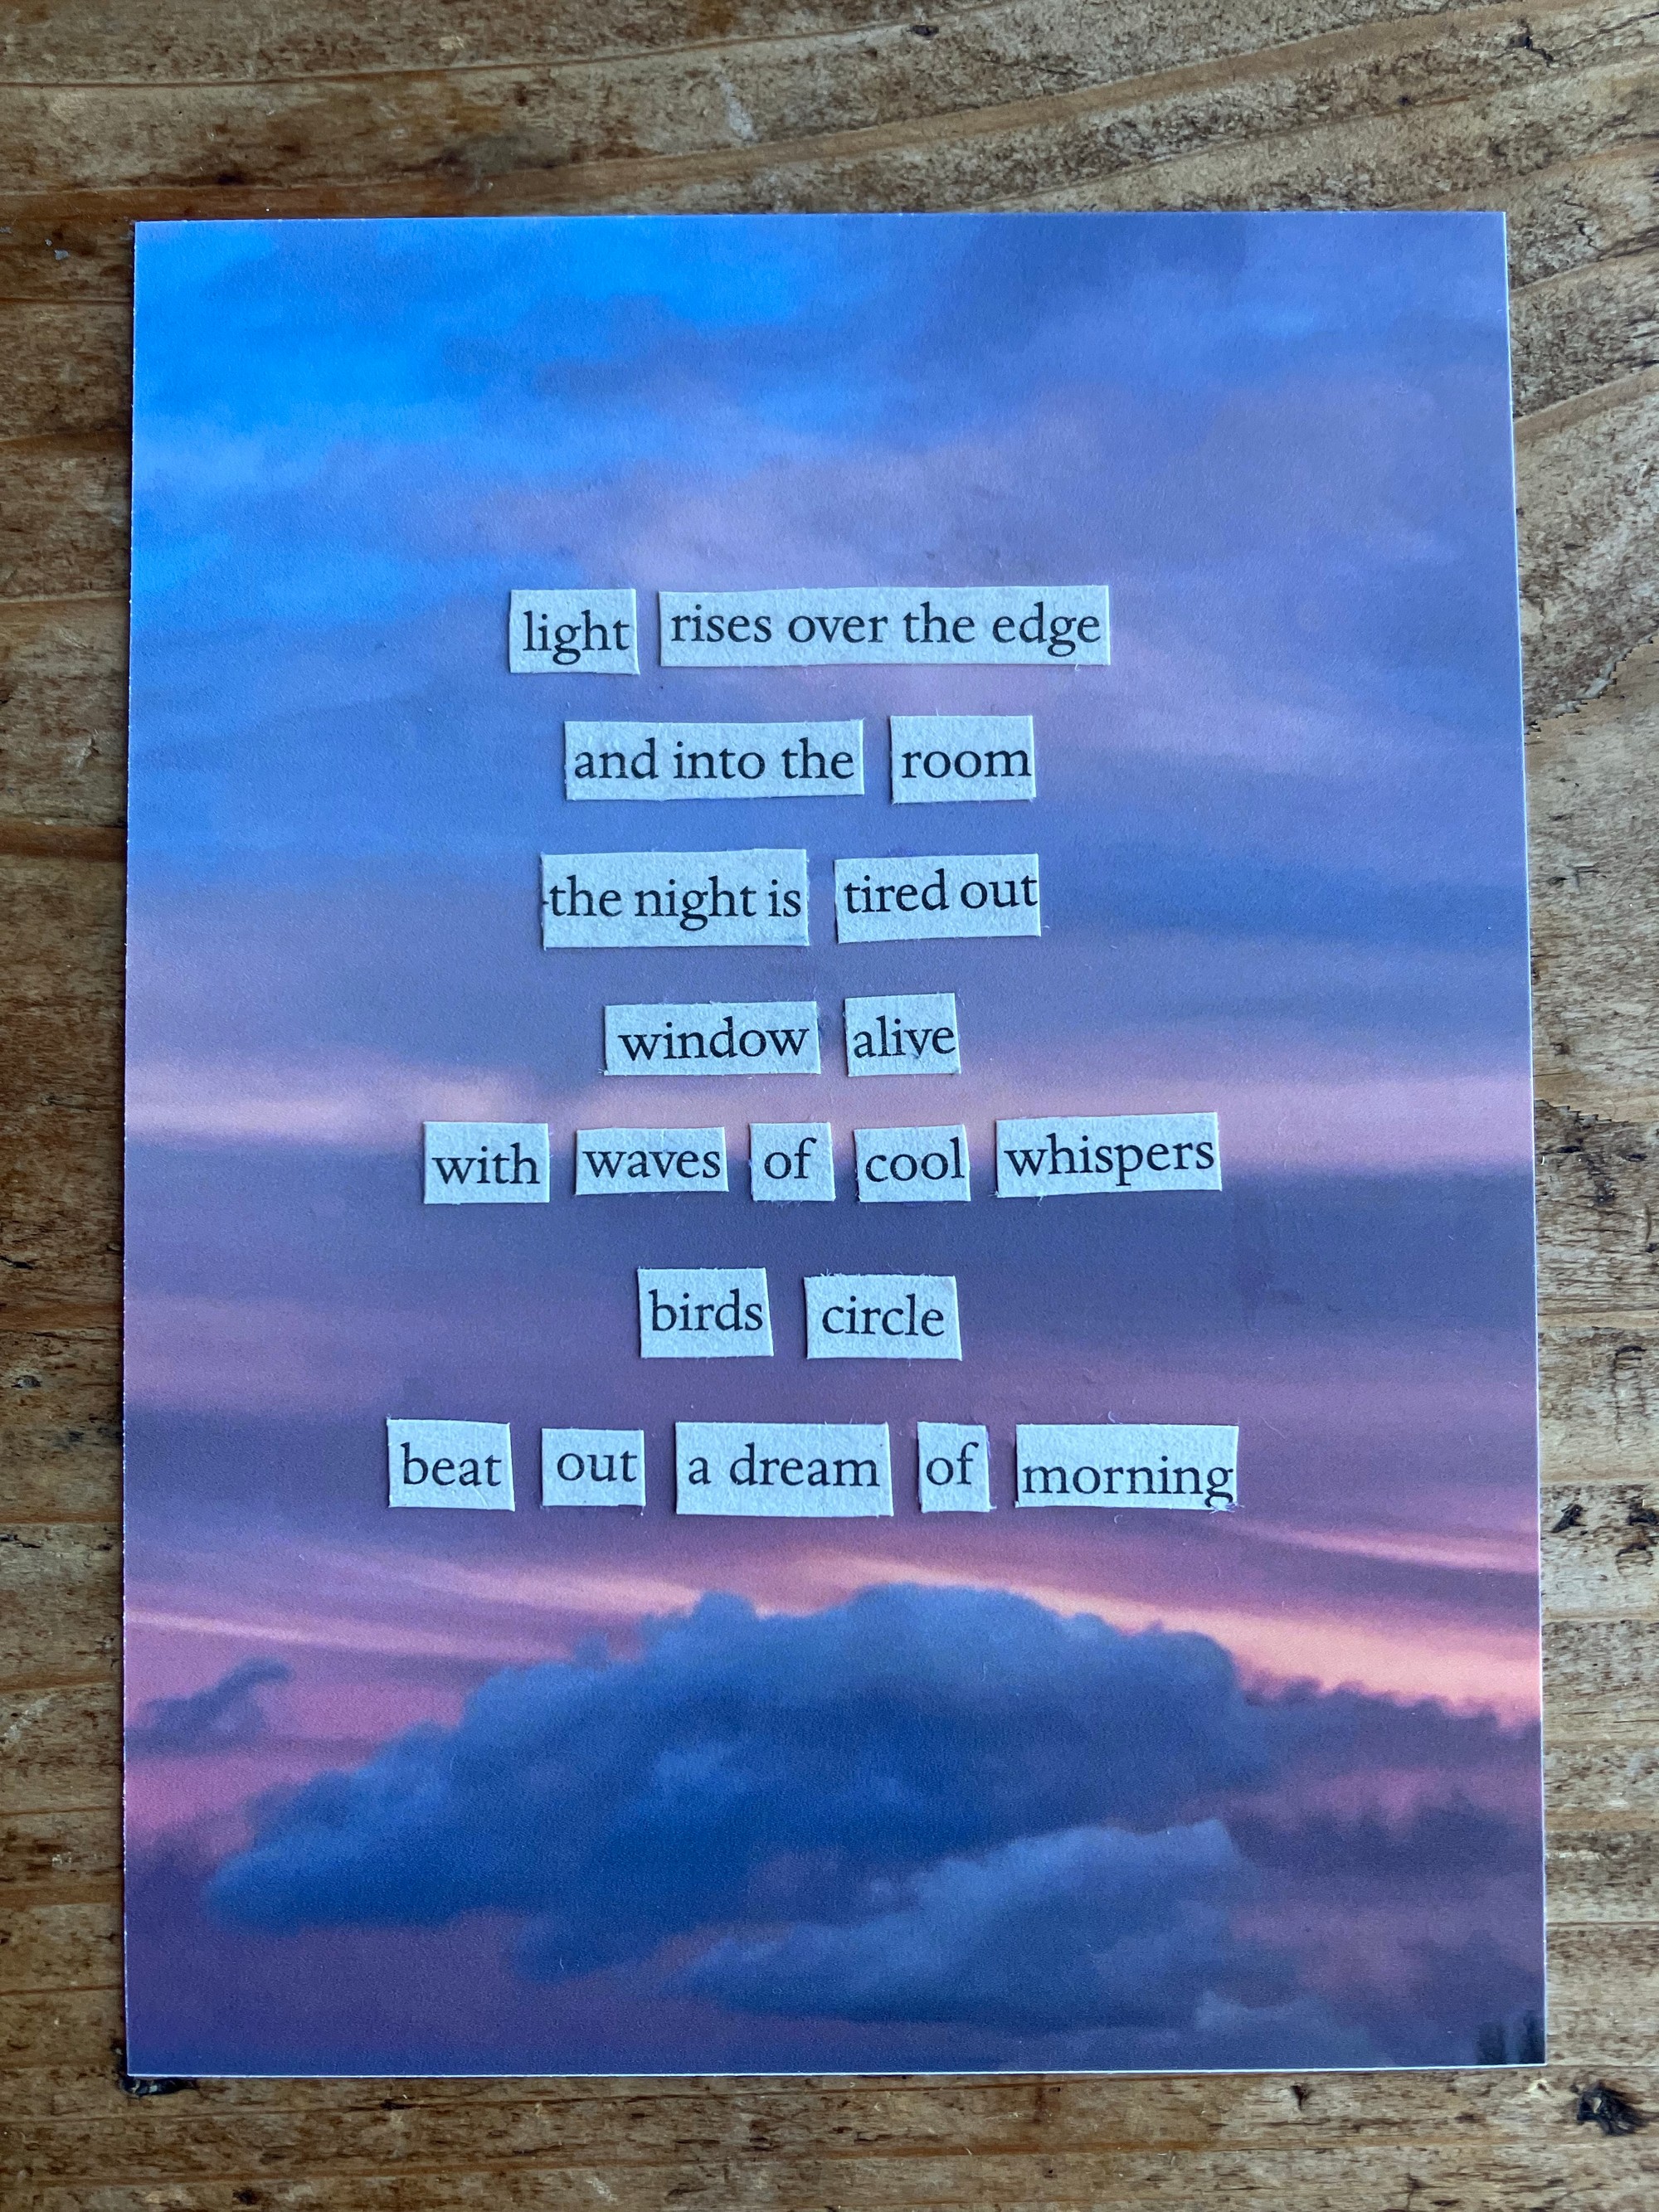 light rises over the edge
and into the room
the night is tired out
window alive
with waves of cool whispers
birds circle
beat out a dream of morning